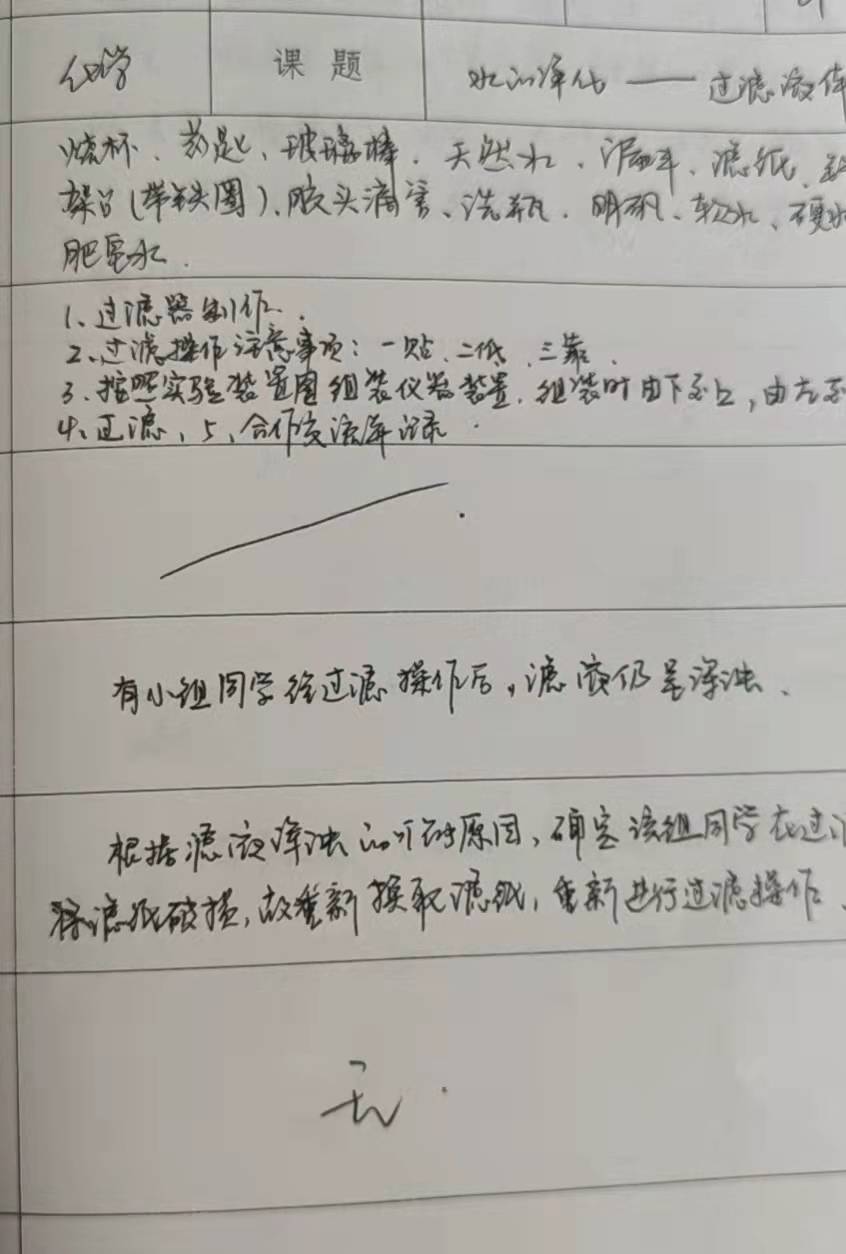 化学 课题 水的净化——过滤液体
烧杯、药匙、玻璃棒、天然水、漏斗、滤纸、
架台(带铁圈)、胶头滴管、洗瓶、明矾、软水、硬水
肥皂水.
1、过滤器制作.
2、过滤操作注意事项:一贴、二低、三靠.
3、按照实验装置图组装仪器装置,组装时由下至上,由左至
4、过滤、5、合作交流并记录.
有小组同学经过滤操作后,滤液仍呈浑浊、
根据滤液浑浊的可能原因,确定该组同学在过
将滤纸破损,故重新换取滤纸,重新进行过滤操作、
无.